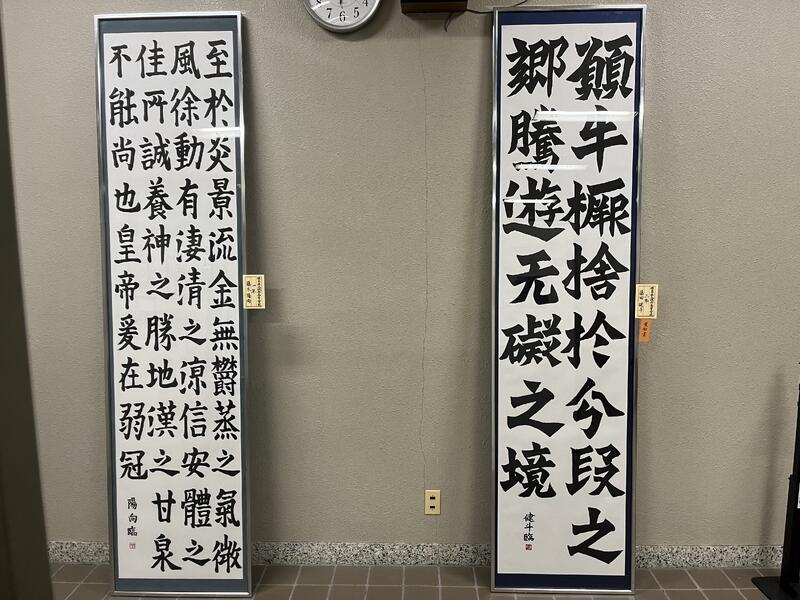 願牛橛捨於分段之
鄉騰遊无礙之境
健斗臨
至於炎景流金無欝蒸之氣微
風徐動有淒清之涼信安體之
佳所誠養神之勝地漢之甘泉
不能尚也皇帝爰在弱冠
陽向臨